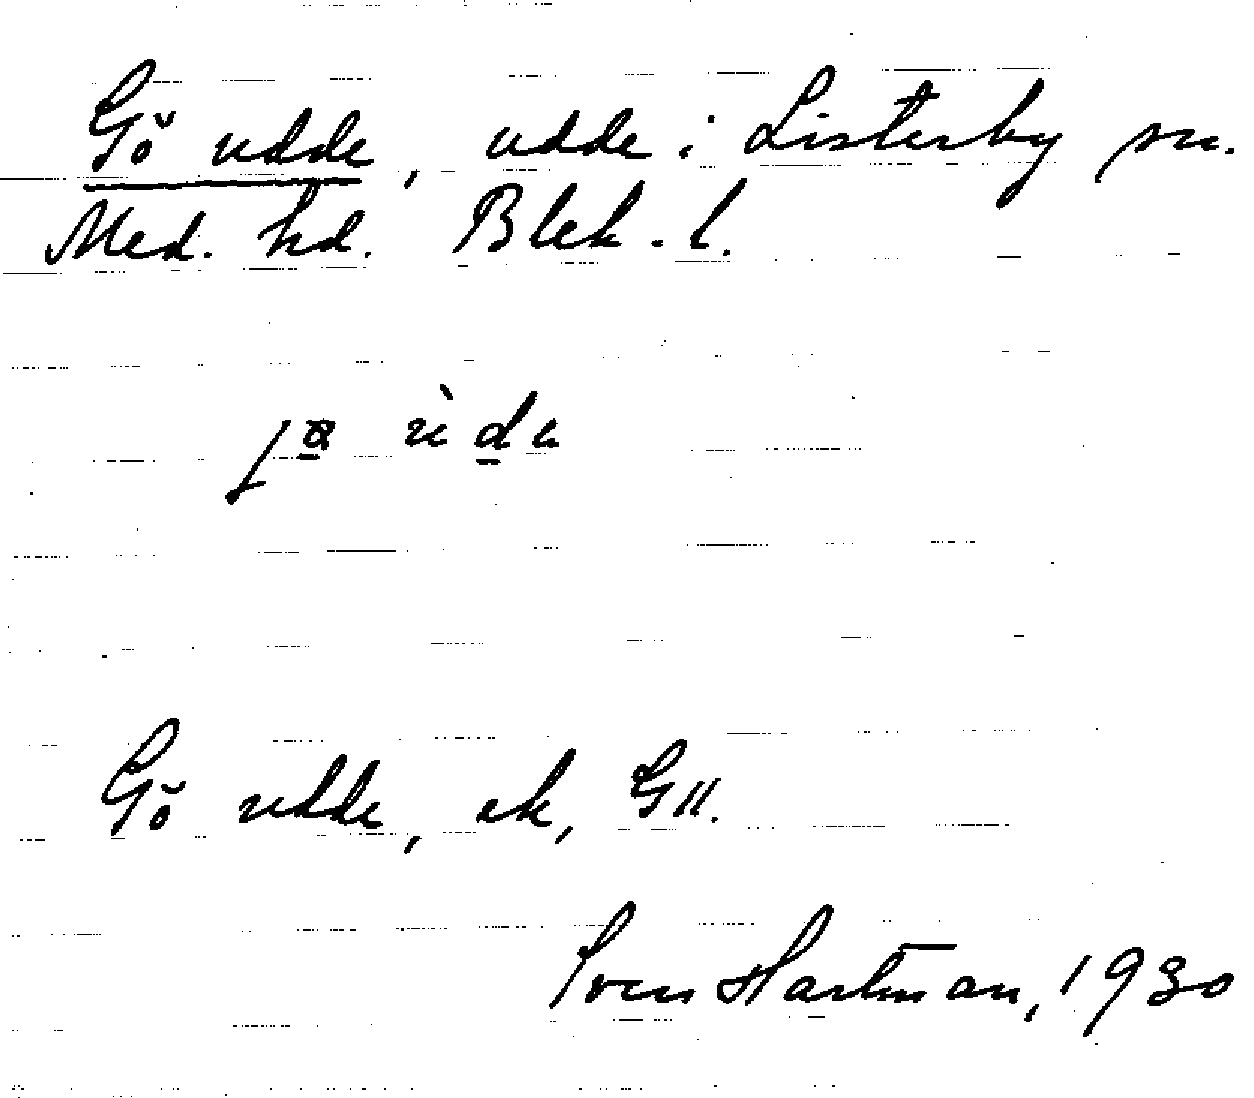 Gö udde, udde i Listerby sn.
Med. hd. Blek. l.
Gö udde, ek, GII.
Sven Hartman, 1930